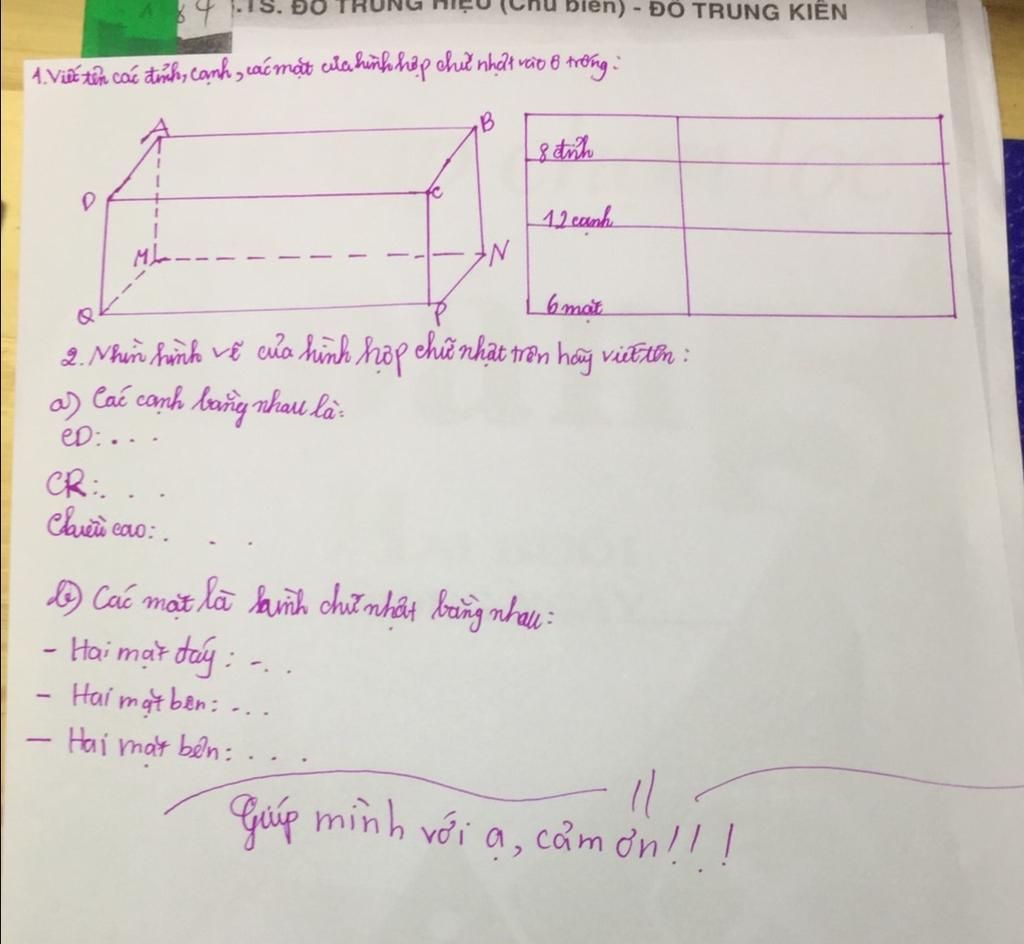 .TS. ĐỖ TRUNG HIỆU (Chủ biên) - ĐỖ TRUNG KIÊN
1. Viết tên các đỉnh, cạnh, các mặt của hình hộp chữ nhật vào ô trống:
A
B
D
C
M
N
Q
P
8 đỉnh
12 cạnh
6 mặt
2. Nhìn hình vẽ của hình hộp chữ nhật trên hãy viết tên:
a) Các cạnh bằng nhau là:
CD: . . .
CR: . . .
Chiều cao: . . .
b) Các mặt là hình chữ nhật bằng nhau:
- Hai mặt đáy: - . .
- Hai mặt bên: - . .
- Hai mặt bên: . . . .
Giúp mình với ạ, cảm ơn!!!